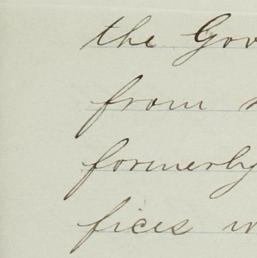 the Gov
from
formerly
fices w